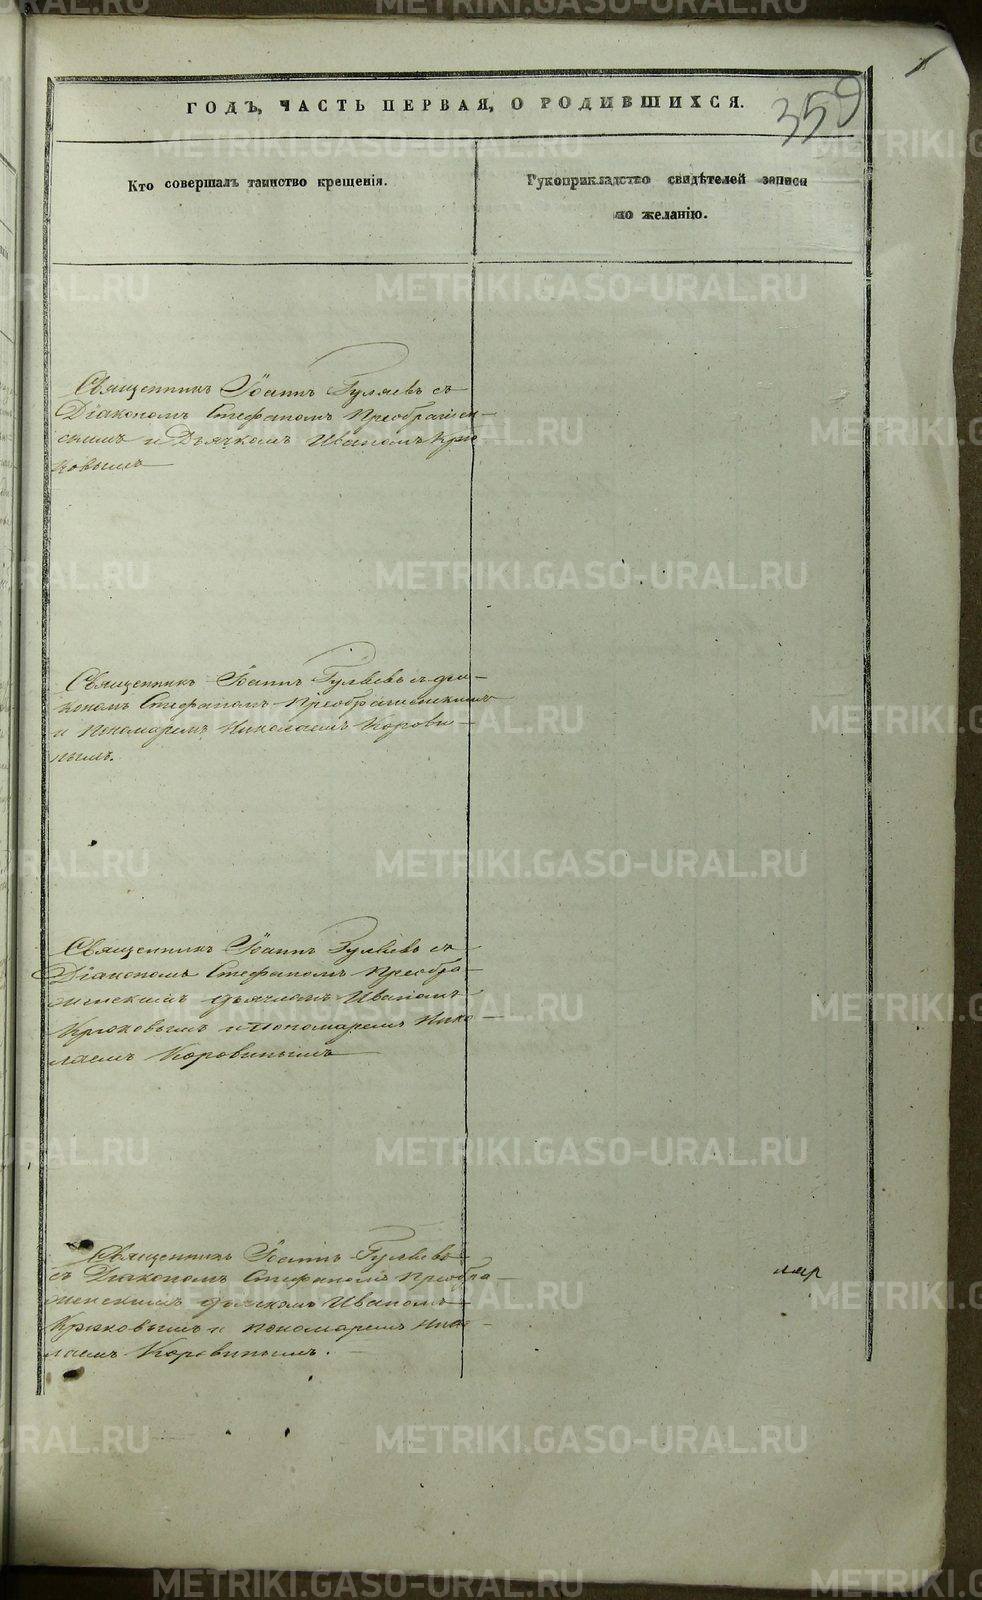 359
ГОДЪ, ЧАСТЬ ПЕРВАЯ, О РОДИВШИХСЯ.
Кто совершалъ таинство крещенія.
Рукоприкладство свидѣтелей записи
по желанію.
Священникъ Іоаннъ Гуляевъ съ
Діакономъ Стефаномъ Преображен-
скимъ и Дьячкомъ Иваномъ Крю
ковымъ
Священникъ Іоаннъ Гуляевъ съ діа-
кономъ Стефаномъ Преображенскимъ
и Пономаремъ Николаемъ Корови-
нымъ.
Священникъ Іоаннъ Гуляевъ съ
Діакономъ Стефаномъ Преобра-
женскимъ дьячкомъ Иваномъ
Крюковымъ и Пономаремъ Нико-
лаемъ Коровинымъ
Священникъ Іоаннъ Гуляевъ
съ Діакономъ Стефаномъ Преобра-
женскимъ дьячкомъ Иваномъ
Крюковымъ и пономаремъ Нико-
лаемъ Коровинымъ.
METRIKI.GASO-URAL.RU